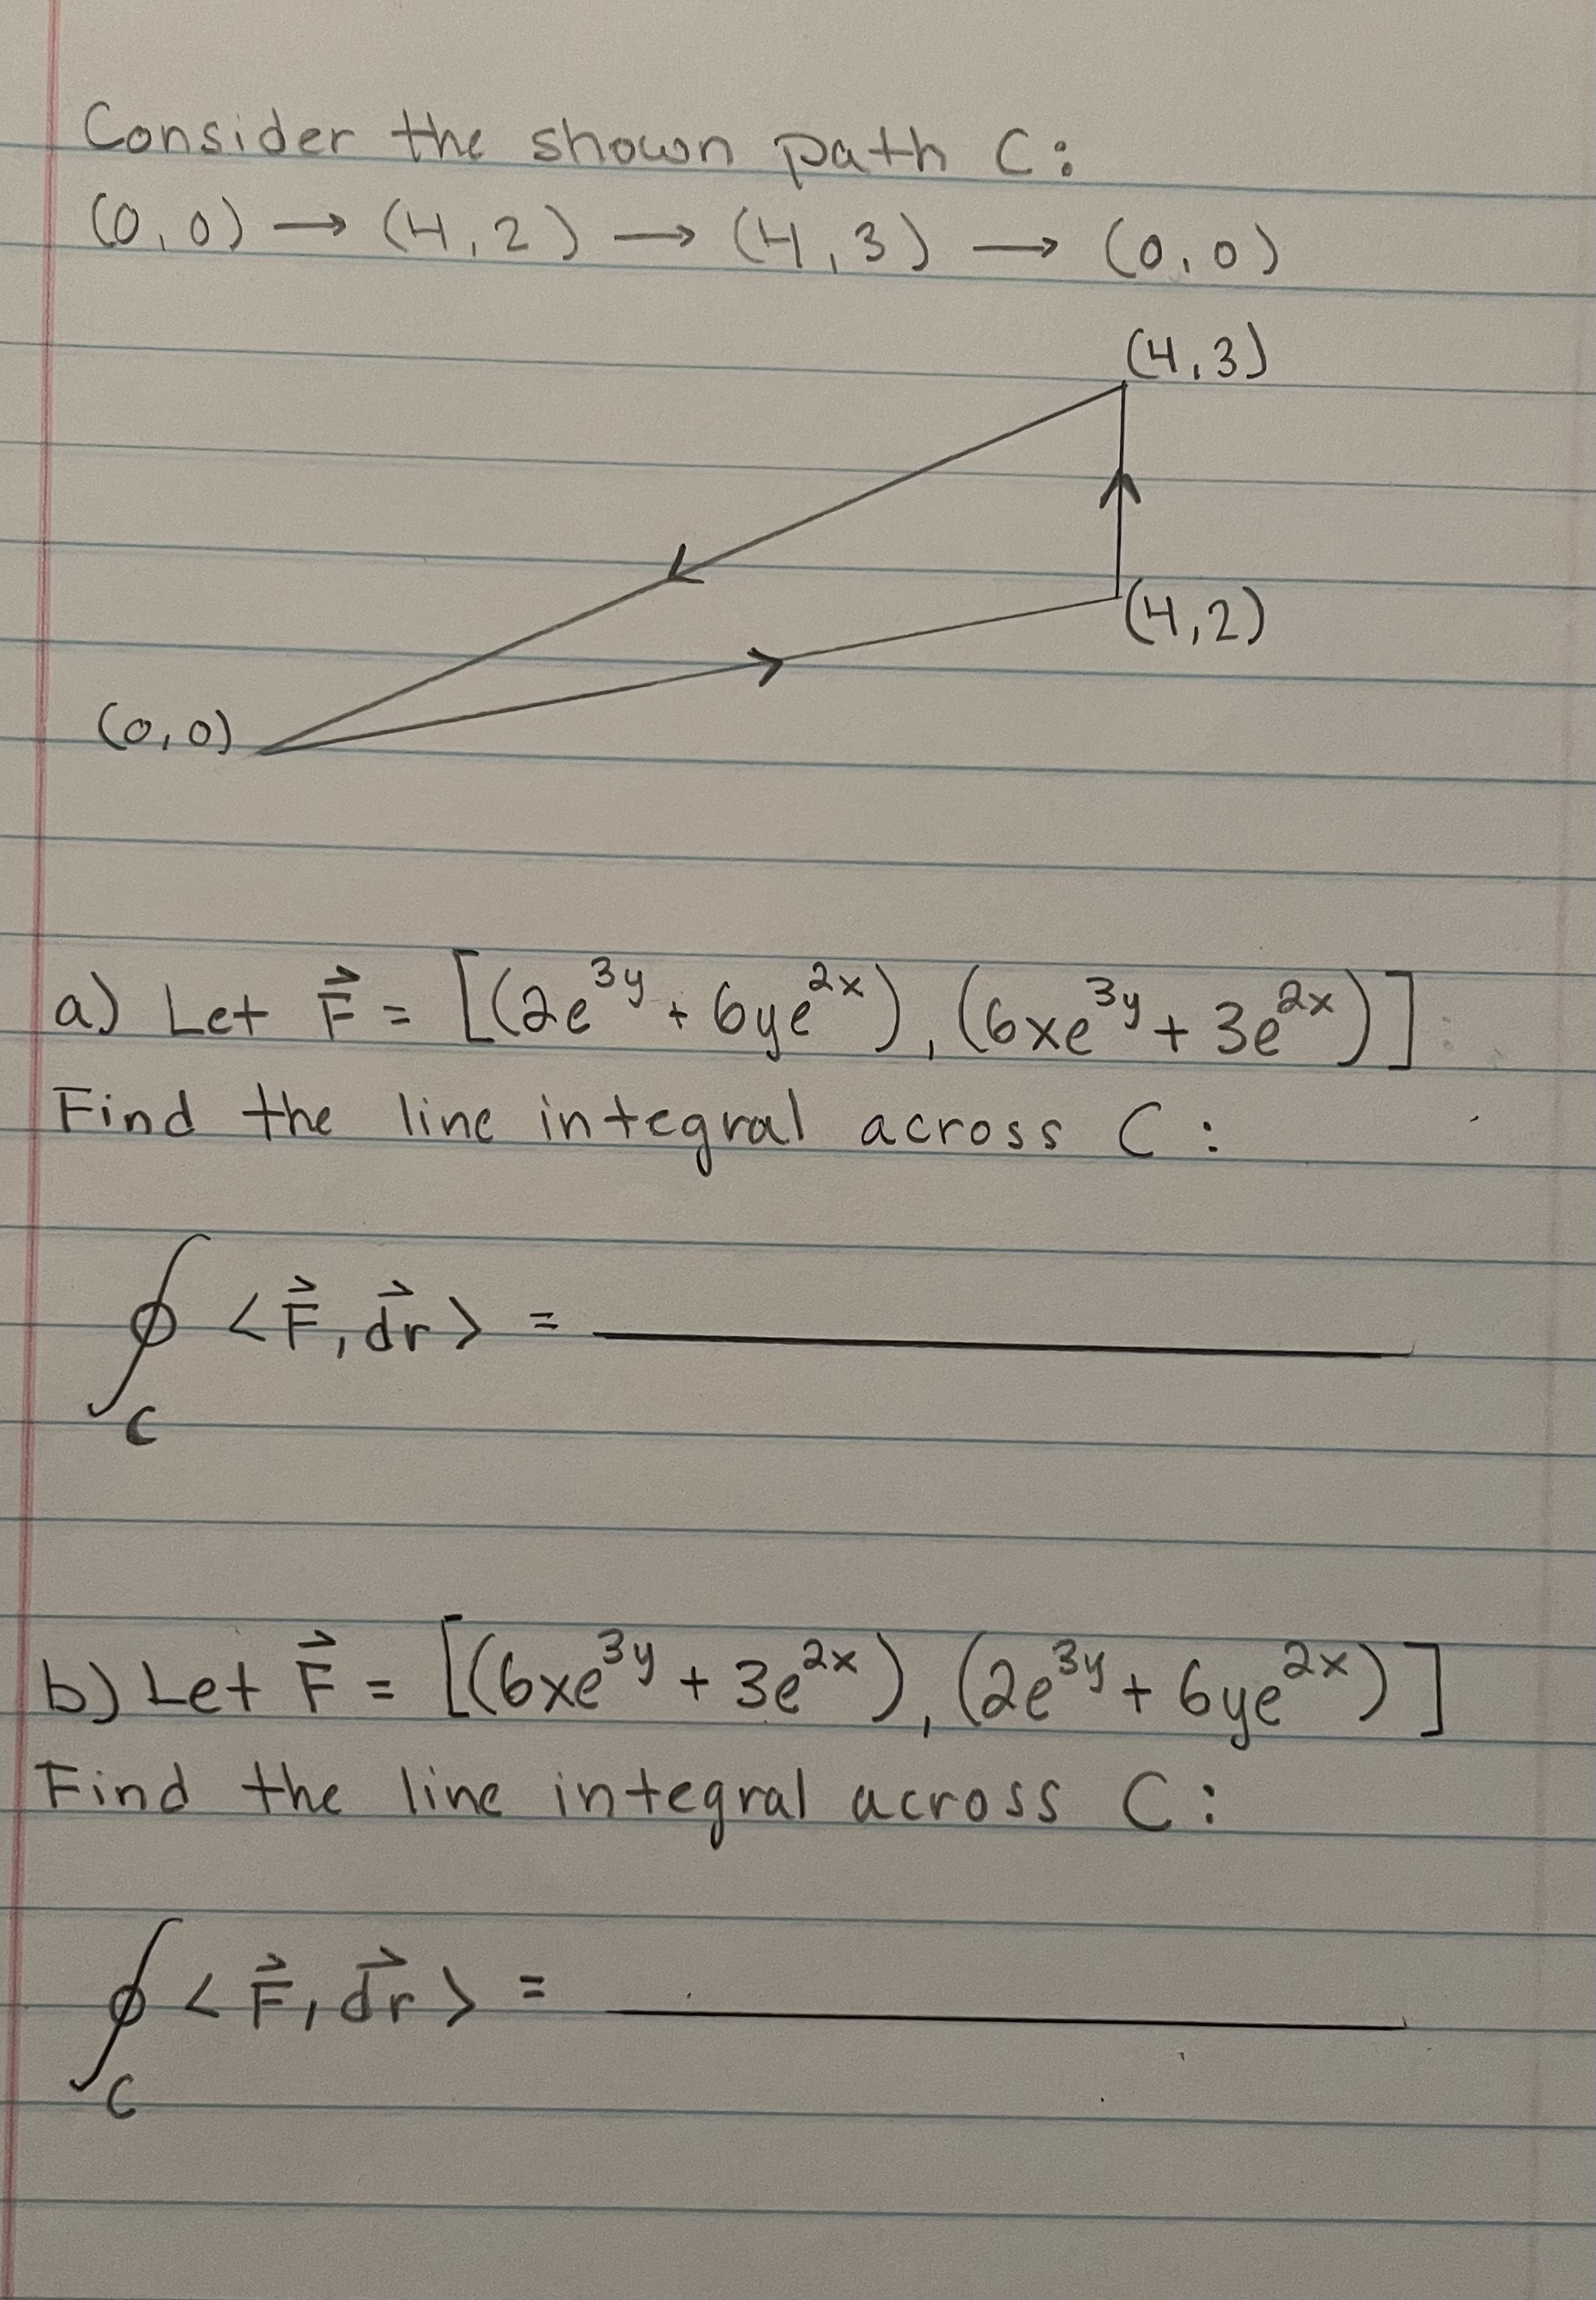 Consider the shown path C:
(0,0) → (4,2) → (4,3) → (0,0)
(4,3)
(4,2)
(0,0)
a) Let F⃗ = [(2e^{3y} + 6ye^{2x}), (6xe^{3y} + 3e^{2x})]
Find the line integral across C:
∮_C <F⃗, d⃗r> = ____________
b) Let F⃗ = [(6xe^{3y} + 3e^{2x}), (2e^{3y} + 6ye^{2x})]
Find the line integral across C:
∮_C <F⃗, d⃗r> = ____________